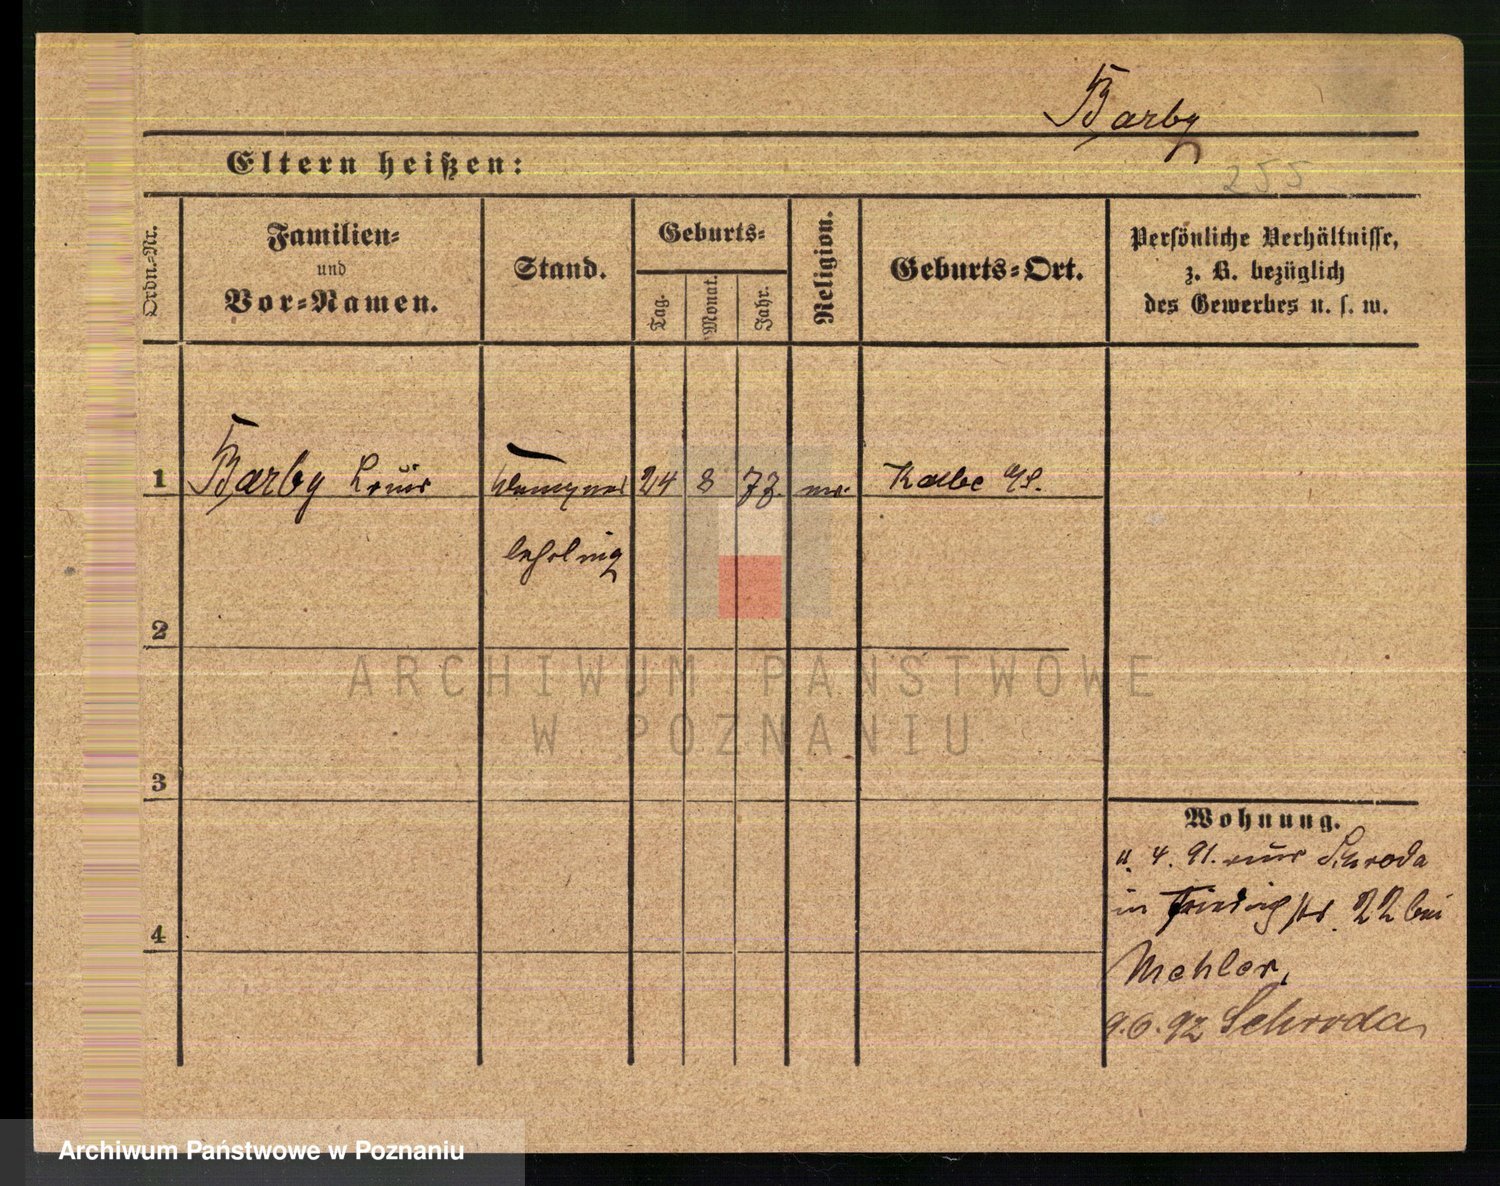 Barby
Eltern heißen:
255
Ordn.-Nr.
Familien-
und
Vor-Namen.
Stand.
Geburts-
Tag.
Monat.
Jahr.
Religion.
Geburts-Ort.
Persönliche Verhältnisse,
z. B. bezüglich
des Gewerbes u. s. w.
1 Barby Louis 24 8 73. ev. Kalbe
lehrling
2
3
4
Wohnung.
4. 91. aus Schroda
in str. 22 bei
Mehler,
9.6.92 Schroda
ARCHIWUM PAŃSTWOWE
W POZNANIU
Archiwum Państwowe w Poznaniu